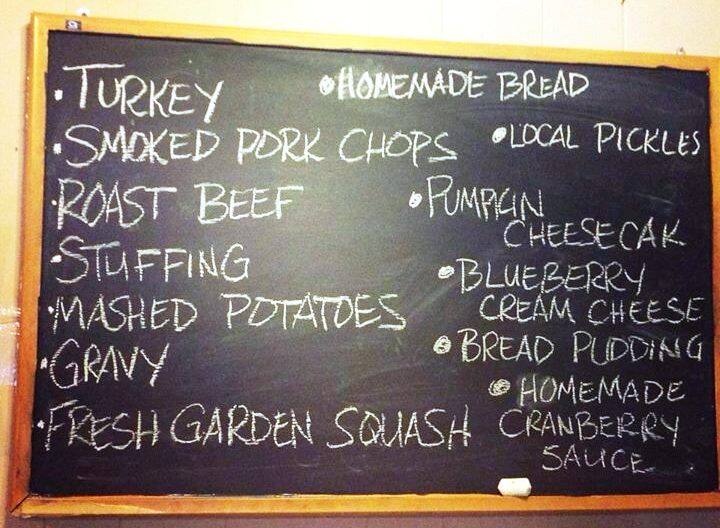 · TURKEY
· SMOKED PORK CHOPS
· ROAST BEEF
· STUFFING
· MASHED POTATOES
· GRAVY
· FRESH GARDEN SQUASH
• HOMEMADE BREAD
• LOCAL PICKLES
• PUMPKIN
CHEESECAK
• BLUEBERRY
CREAM CHEESE
• BREAD PUDDING
• HOMEMADE
CRANBERRY
SAUCE